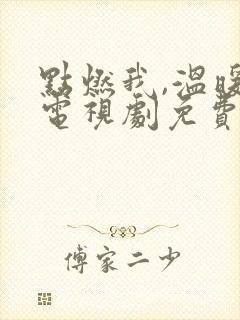 點燃我,溫暖
電視劇免費
傅家二少